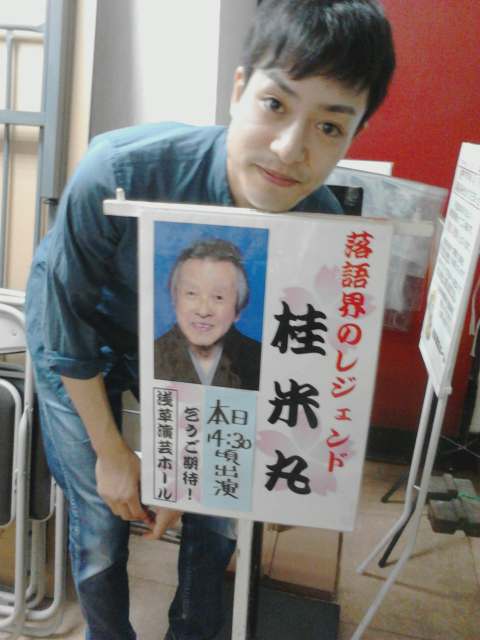 落語界のレジェンド
桂米丸
本日
14:30
頃出演
乞うご期待!
浅草演芸ホール